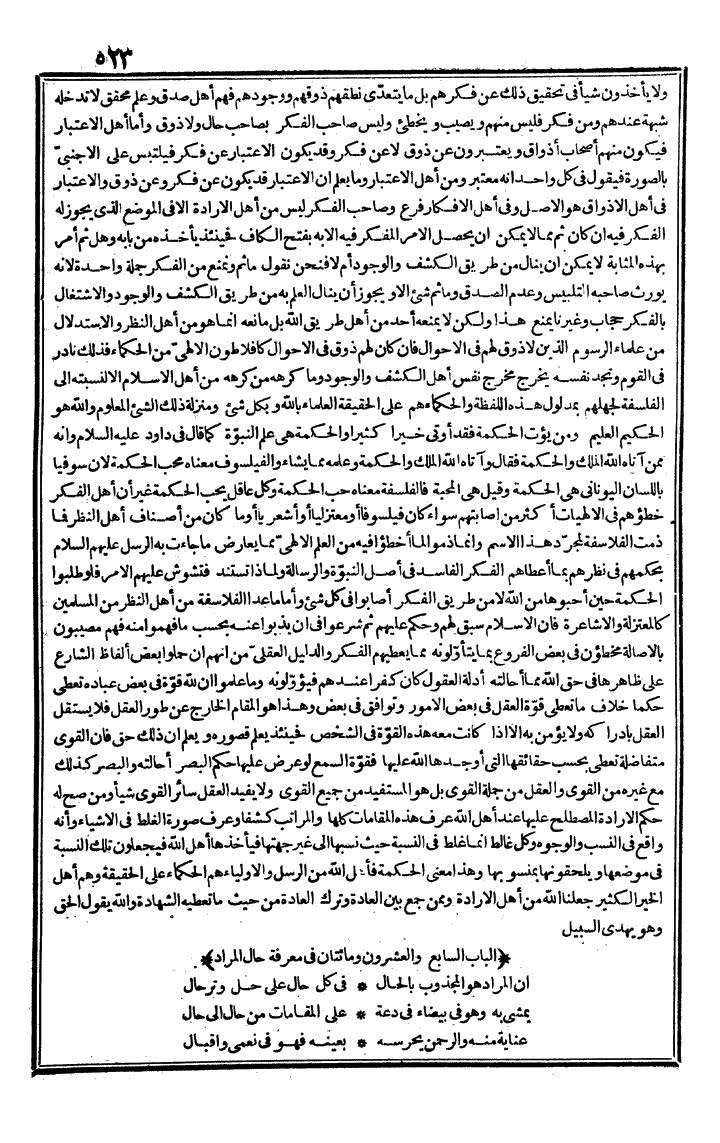 ٥٢٣
ولا يأخذون شيأ فى تحقيق ذلك عن فكرهم بل ما يتعدّى نطقهم ذوقهم ووجودهم فهم أهل صدق وعلم محقق لا تدخله
شبهة عندهم ومن فكر فليس منهم و يصيب و يخطئ وليس صاحب الفكر بصاحب حال ولا ذوق وأما أهل الاعتبار
فيكون منهم أصحاب أذواق و يعتبرون عن ذوق لا عن فكر وقد يكون الاعتبار عن فكر فيلتبس على الاجنبىّ
بالصورة فيقول فى كل واحد انه معتبر ومن أهل الاعتبار وما يعلم ان الاعتبار قد يكون عن فكر وعن ذوق والاعتبار
فى أهل الاذواق هو الاصل وفى أهل الافكار فرع وصاحب الفكر ليس من أهل الارادة الا فى الموضع الذى يجوز له
الفكر فيه ان كان ثم مما لا يمكن ان يحصل الامر المفكر فيه الا به بفتح الكاف فحينئذ يأخذه من بابه وهل ثم أمر
بهذه المثابة لا يمكن ان ينال من طريق الكشف والوجود أم لا فنحن نقول ما ثم ونمنع من الفكر جملة واحدة لانه
يورث صاحبه التلبيس وعدم الصدق وما ثم شئ الا و يجوز أن ينال العلم به من طريق الكشف والوجود والاشتغال
بالفكر حجاب وغيرنا يمنع هذا ولكن لا يمنعه أحد من أهل طريق الله بل مانعه انما هو من أهل النظر والاستدلال
من علماء الرسوم الذين لا ذوق لهم فى الاحوال فان كان لهم ذوق فى الاحوال كافلاطون الالهىّ من الحكماء فذلك نادر
فى القوم وتجد نفسه يخرج مخرج نفس أهل الكشف والوجود وما كرهه من كرهه من أهل الاسلام الا لنسبته الى
الفلسفة لجهلهم بمدلول هذه اللفظة والحكماء هم على الحقيقة العلماء بالله و بكل شئ ومنزلة ذلك الشئ المعلوم والله هو
الحكيم العليم ومن يؤت الحكمة فقد أوتى خيرا كثيرا والحكمة هى علم النبوّة كما قال فى داود عليه السلام وانه
ممن آتاه الله الملك والحكمة فقال وآتاه الله الملك والحكمة وعلمه مما يشاء والفيلسوف معناه محب الحكمة لان سوفيا
باللسان اليونانى هى الحكمة وقيل هى المحبة فالفلسفة معناه حب الحكمة وكل عاقل يحب الحكمة غير أن أهل الفكر
خطؤهم فى الالهيات أكثر من اصابتهم سواء كان فيلسوفا أو معتزليا أو أشعريا أو ما كان من أصناف أهل النظر فما
ذمت الفلاسفة لمجرّد هذا الاسم وانما ذموا لما أخطؤا فيه من العلم الالهىّ مما يعارض ما جاءت به الرسل عليهم السلام
بحكمهم فى نظرهم بما أعطاهم الفكر الفاسد فى أصل النبوّة والرسالة ولماذا تستند فتشوش عليهم الامر فلو طلبوا
الحكمة حين أحبوها من الله لا من طريق الفكر أصابوا فى كل شئ وأما ما عدا الفلاسفة من أهل النظر من المسلمين
كالمعتزلة والاشاعرة فان الاسلام سبق لهم وحكم عليهم ثم شرعوا فى ان يذبوا عنه بحسب ما فهموا منه فهم مصيبون
بالاصالة مخطؤن فى بعض الفروع بما يتأوّلونه مما يعطيهم الفكر والدليل العقلىّ من انهم ان حملوا بعض ألفاظ الشارع
على ظاهرها فى حق الله مما أحالته أدلة العقول كان كفرا عندهم فيؤوّلونه وما علموا ان لله قوّة فى بعض عباده تعطى
حكما خلاف ما تعطى قوّة العقل فى بعض الامور وتوافق فى بعض وهذا هو المقام الخارج عن طور العقل فلا يستقل
العقل بادراكه ولا يؤمن به الا اذا كانت معه هذه القوّة فى الشخص فحينئذ يعلم قصوره و يعلم ان ذلك حق فان القوى
متفاضلة تعطى بحسب حقائقها التى أوجدها الله عليها فقوّة السمع لو عرض عليها حكم البصر أحالته والبصر كذلك
مع غيره من القوى والعقل من جملة القوى بل هو المستفيد من جميع القوى ولا يفيد العقل سائر القوى شيأ ومن صح له
حكم الارادة المصطلح عليها عند أهل الله عرف هذه المقامات كلها والمراتب كشفا وعرف صورة الغلط فى الاشياء وأنه
واقع فى النسب والوجوه وكل غالط انما غلط فى النسبة حيث نسبها الى غير جهتها فيأخذها أهل الله فيجعلون تلك النسبة
فى موضعها و يلحقونها بمنسوبها وهذا معنى الحكمة فأهل الله من الرسل والاولياء هم الحكماء على الحقيقة وهم أهل
الخير الكثير جعلنا الله من أهل الارادة وممن جمع بين العادة وترك العادة من حيث ما تعطيه الشهادة والله يقول الحق
وهو يهدى السبيل
﴿الباب السابع والعشرون ومائتان فى معرفة حال المراد﴾
ان المراد هو المجذوب بالحال * فى كل حال على حل وترحال
يمشى به وهو فى بيضاء فى دعة * على المقامات من حال الى حال
عناية منه والرحمن يحرسه * بعينه فهو فى نعمى واقبال